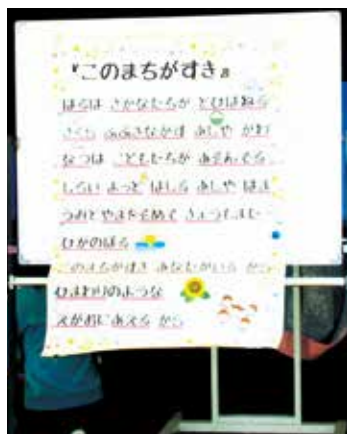 『このまちがすき』
はるは さかなたちが とびはねる
さくら ふぶきながす あしや がわ
なつは こどもたちが あそんでる
しろい よっと はしる あしや はま
うみと やまをそめて きょうもまた
ひがのぼる
このまちがすき あなたがいる から
ひまわりのような
えがおにあえる から